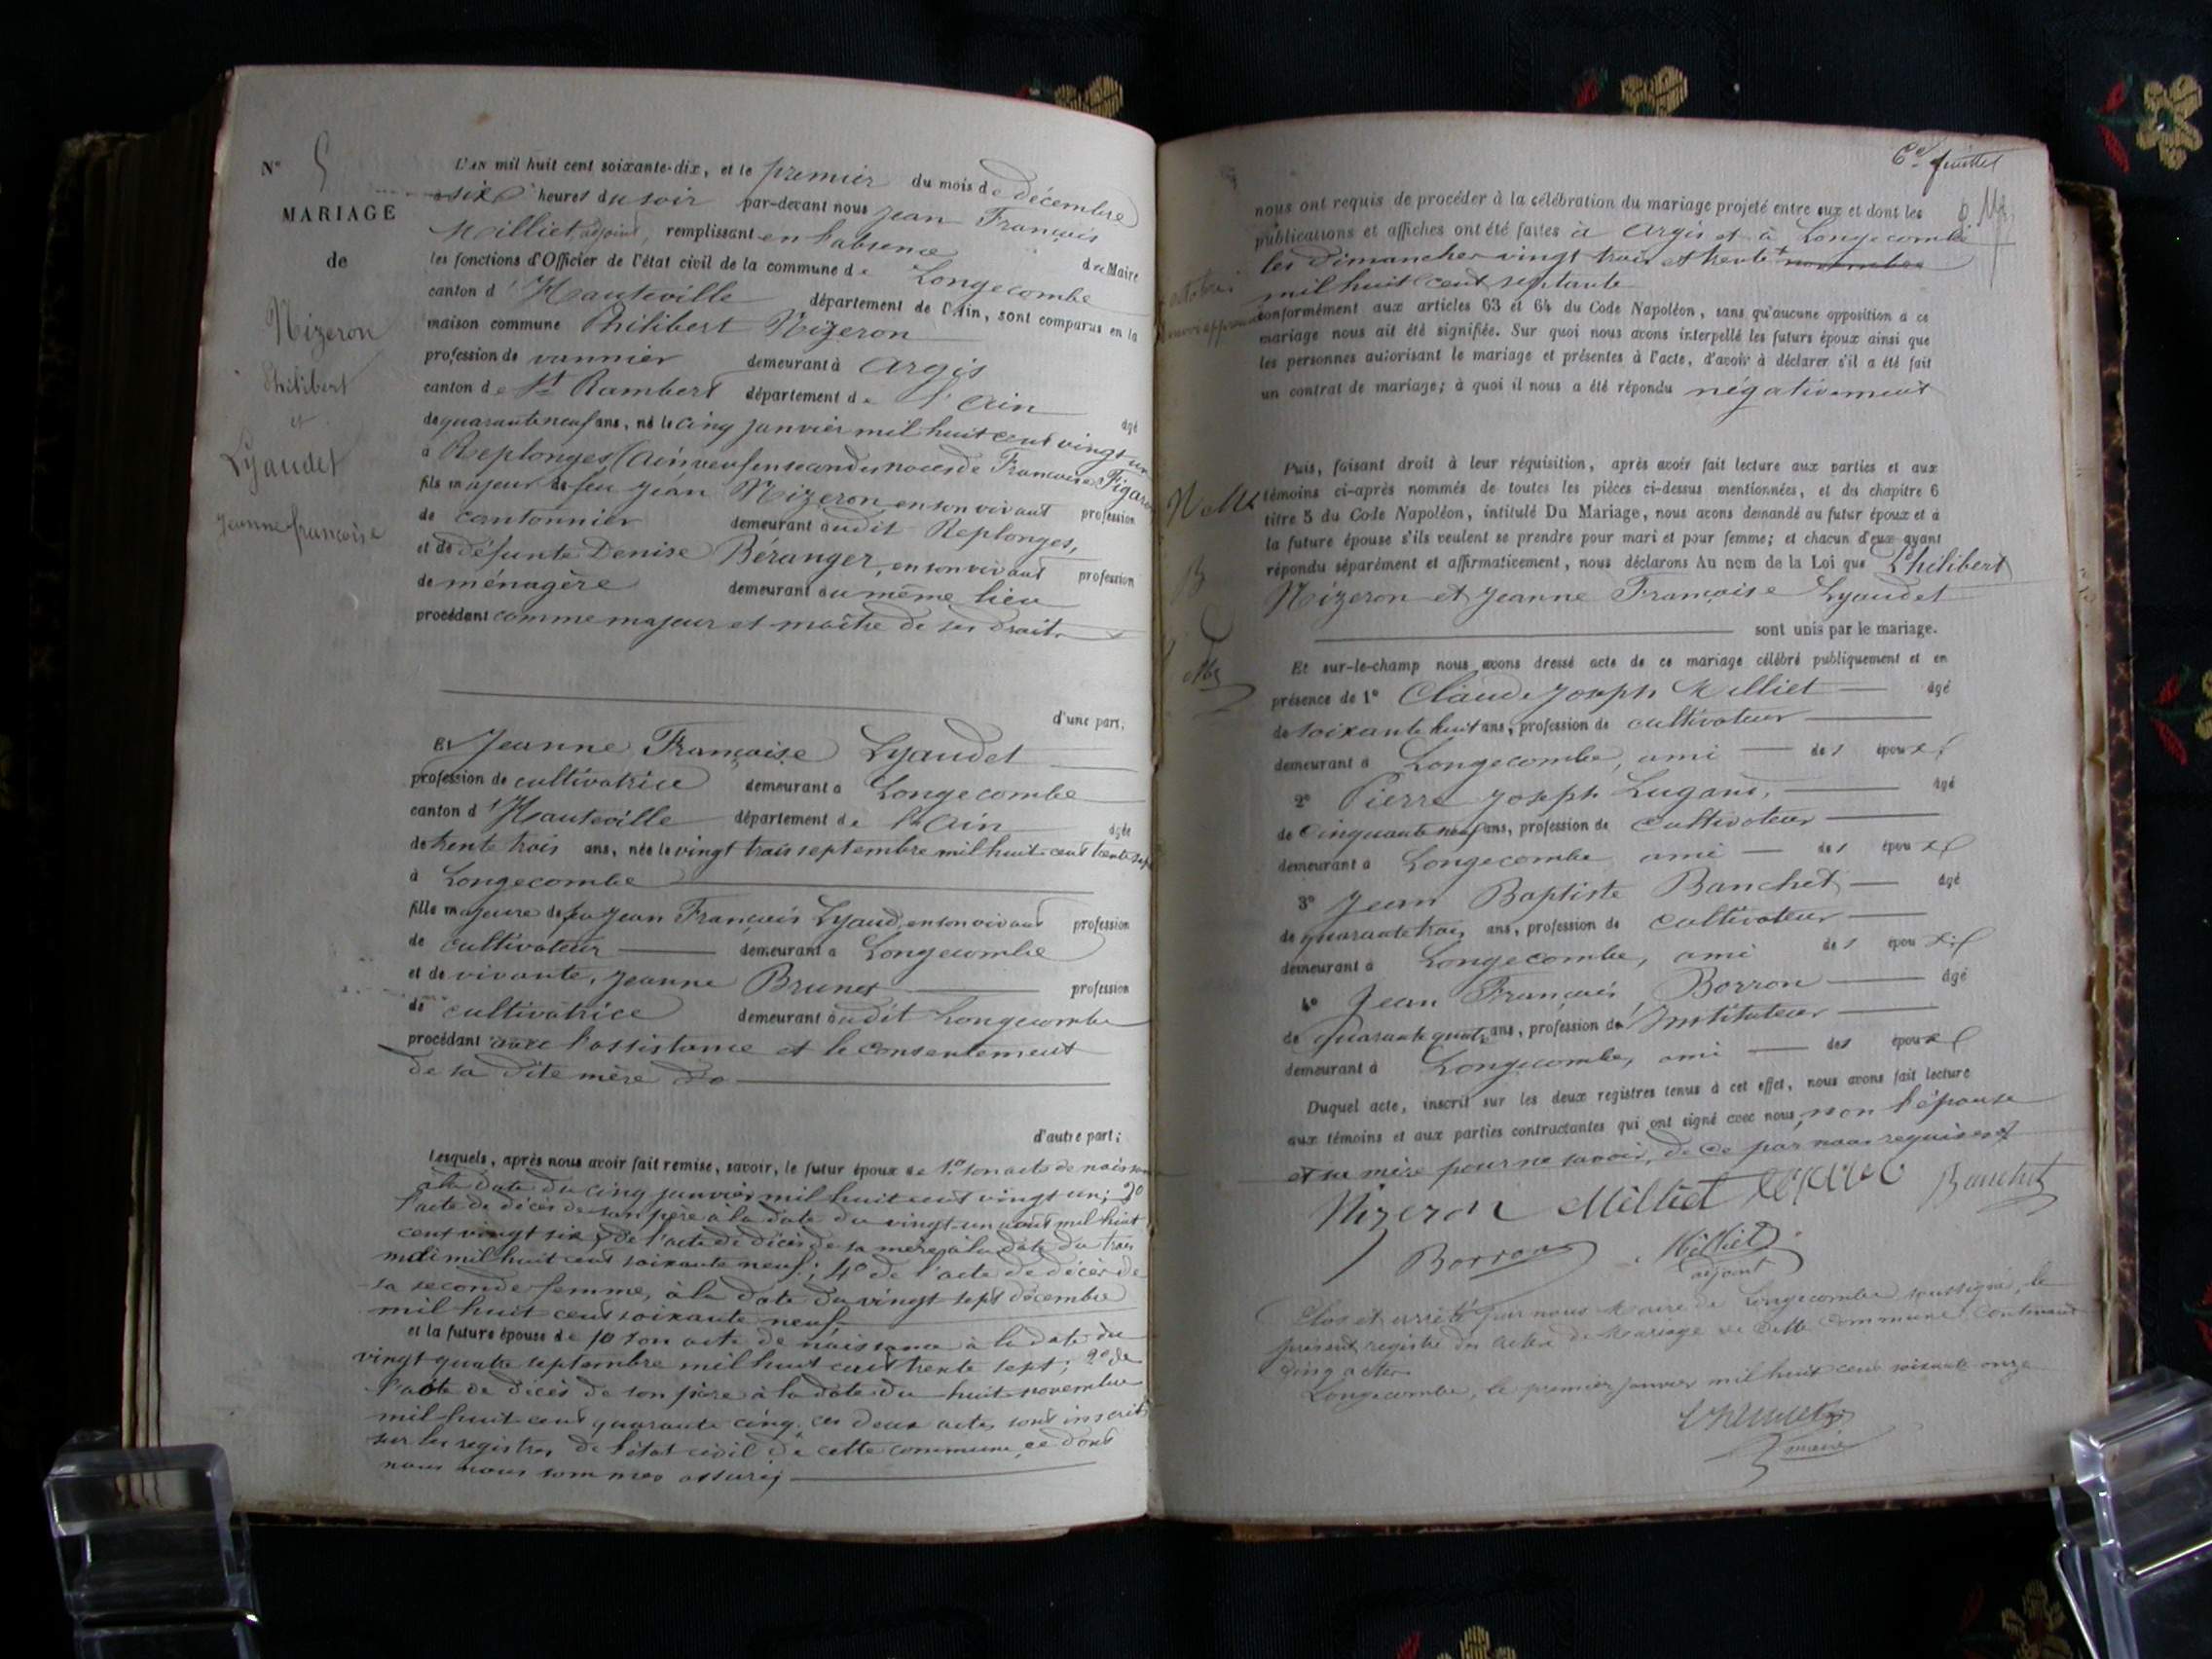 N° 5
MARIAGE
de
Nizeron
Philibert
et
Lyaudet
Jeanne françoise
L'AN mil huit cent soixante-dix, et le premier du mois de décembre
à six heures du soir par-devant nous Jean François
Milliet, adjoint, remplissant en l'absence du Maire
les fonctions d'Officier de l'état civil de la commune de Longecombe
canton d'Hauteville département de l'Ain, sont comparus en la
maison commune Philibert Nizeron
profession de vannier demeurant à Argis
canton de St Rambert département de l'Ain âgé
de quarante neuf ans, né le cinq janvier mil huit cent vingt un
à Replonges (Ain veuf en secondes noces de Françoise Figaro
fils majeur de feu Jean Nizeron en son vivant profession
de cantonnier demeurant audit Replonges,
et de défunte Denise Béranger, en son vivant profession
de ménagère demeurant au même lieu
procédant comme majeur et maître de ses droits
d'une part;
Et Jeanne Françoise Lyaudet
profession de cultivatrice demeurant à Longecombe
canton d'Hauteville département de l'Ain âgée
de trente trois ans, née le vingt trois septembre mil huit cent trente sept
à Longecombe
fille majeure de feu Jean François Lyaud, en son vivant profession
de cultivateur demeurant à Longecombe
et de vivante, Jeanne Brunet profession
de cultivatrice demeurant audit Longecombe
procédant avec l'assistance et le consentement
de sa dite mère
d'autre part;
Lesquels, après nous avoir fait remise, savoir, le futur époux de 1° son acte de naissance
à la date du cinq janvier mil huit cent vingt un; 2°
l'acte de décès de son père à la date du vingt-un août mil huit
cent vingt six; de l'acte de décès de sa mère, à la date du trois
mai mil huit cent soixante neuf; 4° de l'acte de décès de
sa seconde femme, à la date du vingt sept décembre
mil huit cent soixante neuf
et la future épouse de 1° son acte de naissance à la date du
vingt-quatre septembre mil huit cent trente sept; 2° de
l'acte de décès de son père à la date du huit novembre
mil huit cent quarante cinq. ces deux actes sont inscrits
sur les registres de l'état civil de cette commune, ce dont
nous nous sommes assurés
6e feuillet
nous ont requis de procéder à la célébration du mariage projeté entre eux et dont les
publications et affiches ont été faites à Argis et à Longecombe
les dimanches vingt trois et trente + novembre
octobre
mil huit cent septante
conformément aux articles 63 et 64 du Code Napoléon, sans qu'aucune opposition à ce
mariage nous ait été signifiée. Sur quoi nous avons interpellé les futurs époux ainsi que
les personnes autorisant le mariage et présentes à l'acte, d'avoir à déclarer s'il a été fait
un contrat de mariage; à quoi il nous a été répondu négativement
Puis, faisant droit à leur réquisition, après avoir fait lecture aux parties et aux
témoins ci-après nommés de toutes les pièces ci-dessus mentionnées, et du chapitre 6
titre 5 du Code Napoléon, intitulé Du Mariage, nous avons demandé au futur époux et à
la future épouse s'ils veulent se prendre pour mari et pour femme; et chacun d'eux ayant
répondu séparément et affirmativement, nous déclarons Au nom de la Loi que Philibert
Nizeron et Jeanne Françoise Lyaudet
sont unis par le mariage.
Et sur-le-champ nous avons dressé acte de ce mariage célébré publiquement et en
présence de 1° Claude Joseph Milliet âgé
de soixante huit ans, profession de cultivateur
demeurant à Longecombe, ami des époux
2° Pierre Joseph Lugand, âgé
de cinquante neuf ans, profession de cultivateur
demeurant à Longecombe ami des époux
3° Jean Baptiste Banchet âgé
de quarante trois ans, profession de cultivateur
demeurant à Longecombe, ami des époux
4° Jean François Borron âgé
de quarante quatre ans, profession de Instituteur
demeurant à Longecombe, ami des époux
Duquel acte, inscrit sur les deux registres tenus à cet effet, nous avons fait lecture
aux témoins et aux parties contractantes qui ont signé avec nous, non l'épouse
et sa mère pour ne savoir, de ce par nous requises
Nizeron Milliet Banchet
Borron Milliet
adjoint
Clos et arrêté par nous Maire de Longecombe soussigné, le
présent registre des actes de Mariage de cette commune contenant
cinq actes
Longecombe, le premier janvier mil huit cent soixante onze
maire